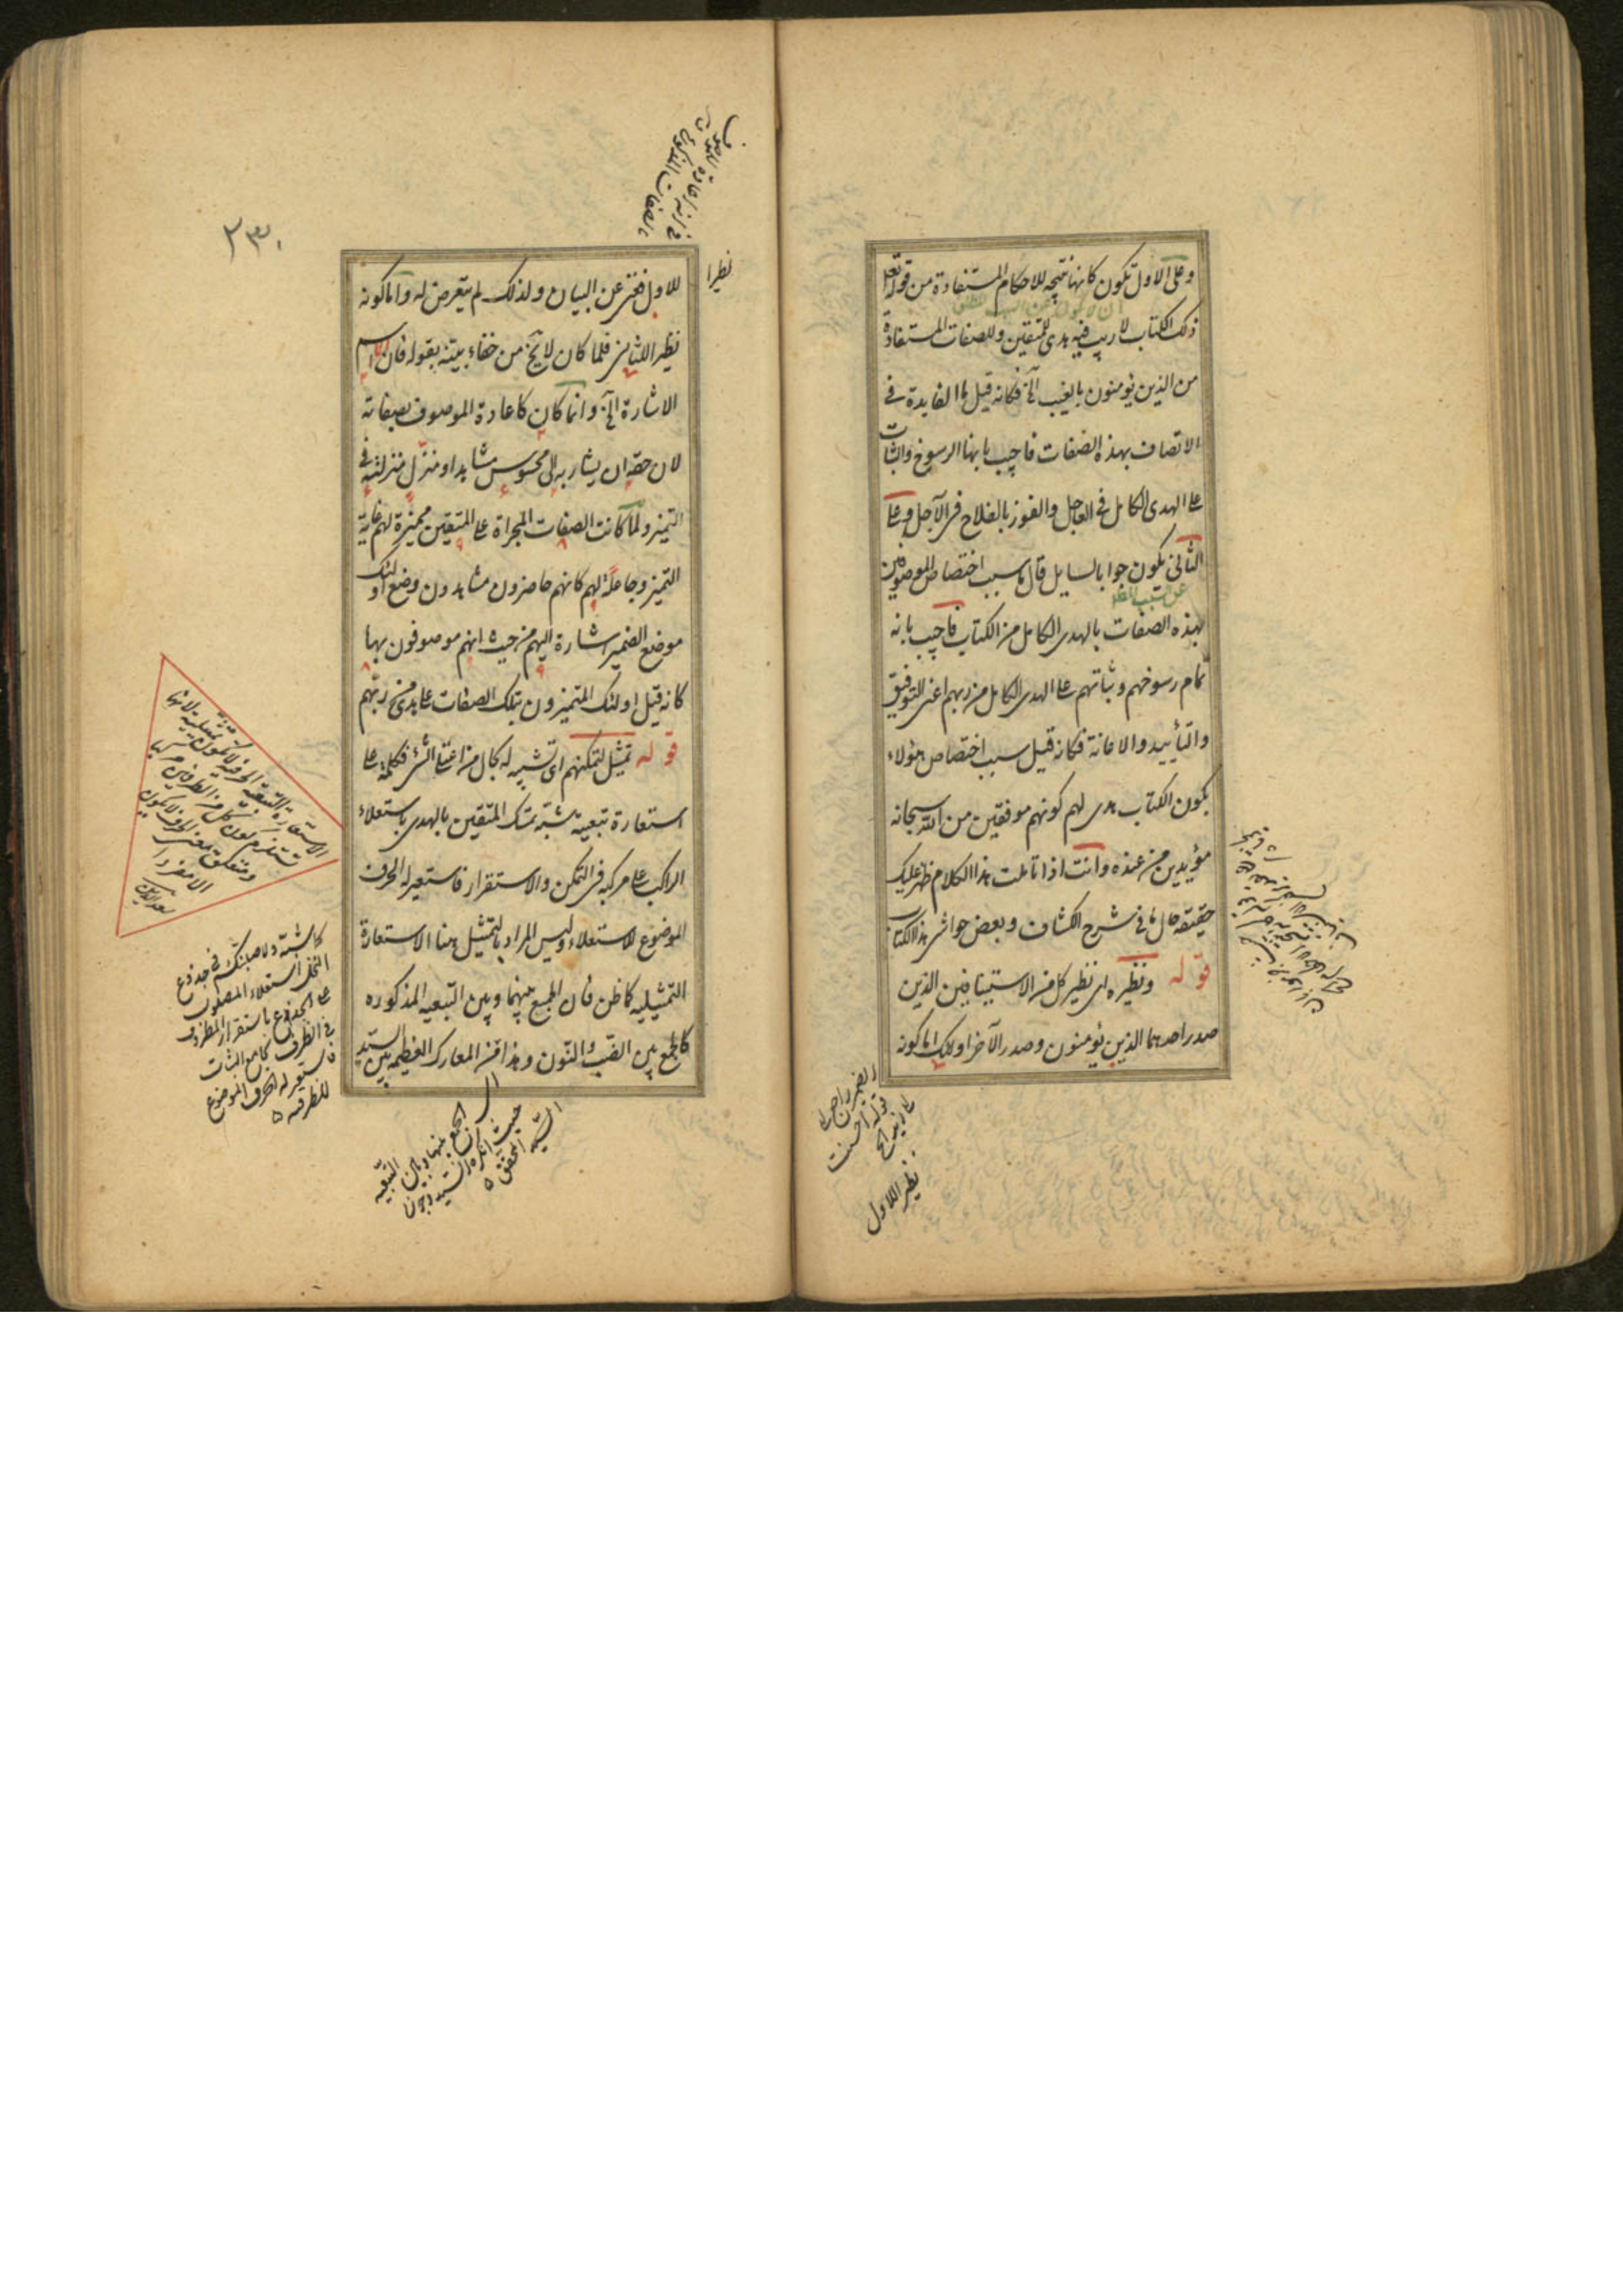 وعلى الاول تكون كانها نتيجه للاحكام المستفادة من قوله تعالى
ذلك الكتاب لا ريب فيه هدى للمتقين وللصفات المستفادة
من الذين يؤمنون بالغيب الخ فكانه قيل ما الفايدة فى
الاتصاف بهذه الصفات فاجيب بانها الرسوخ والثبات
على الهدى الكامل فى العاجل والفوز بالفلاح فى الآجل وعلى
الثانى يكون جوابا لسايل قال ما سبب اختصاص الموصوفين
بهذه الصفات بالهدى الكامل من الكتاب فاجيب بانه
تمام رسوخهم وثباتهم على الهدى الكامل من ربهم اعنى التوفيق
والتأييد والاعانة فكانه قيل سبب اختصاص هؤلاء
بكون الكتاب هدى لهم كونهم موفقين من الله سبحانه
مؤيدين من عنده وانت اذا تاملت هذا الكلام ظهر عليك
حقيقة حال ما فى شرح الكشاف وبعض حواشى هذا الكتاب
قوله ونظيره اى نظير كل من الاستينافين الذين
صدر احدهما الذين يؤمنون وصدر الآخر اولئك اما كونه
نظير اللاول
نظيرا
للاول فغنى عن البيان ولذلك لم يتعرض له واما كونه
نظيرا للثانى فلما كان لا يخ من خفاء بينه بقوله فان اسم
الاشارة الخ وانما كان كاعادة الموصوف بصفاته
لان حقه ان يشار به الى محسوس مشاهد او منزل منزلته فى
التميز ولما كانت الصفات المجراة على المتقين مميزة لهم غاية
التميز وجاعلة لهم كانهم حاضرون مشاهدون وضع اولئك
موضع الضمير اشارة اليهم من حيث انهم موصوفون بها
كانه قيل اولئك المتميزون بتلك الصفات على هدى من ربهم
قوله تمثيل لتمكنهم اى تشبيه له بحال من اعتلى الشئ فكلمة على
استعارة تبعية شبه تمسك المتقين بالهدى باستعلاء
الراكب على مركبه فى التمكن والاستقرار فاستعير له الحرف
الموضوع للاستعلاء وليس المراد بالتمثيل هنا الاستعارة
التمثيليه كما ظن فان الجمع بينها وبين التبعيه المذكوره
كالجمع بين الضب والنون وهذا من المعارك العظيمه بين السيد
الاستعارة التبعية الحرفية لا تكون تمثيلية لانها
تستلزم كون كل من الطرفين مركبا
ومتعلق معنى الحرف لا يكون
الا مفردا
سعد الدين
كما شبه ولاصلبنكم فى جذوع
النخل استعلاء المصلوب
على الجذوع باستقرار المظروف
فى الظرف بجامع الثبات
فاستعير له الحرف الموضوع
للظرفيه